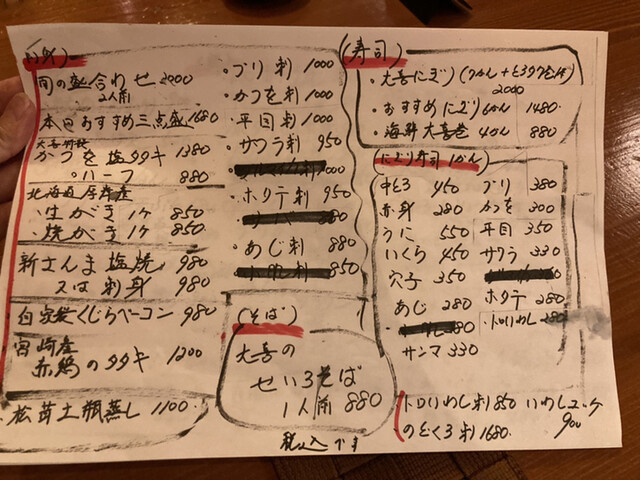 旬の盛合わせ 2000
2人前
本日おすすめ三点盛 1680
大喜特製
かつを塩タタキ 1380
〃ハーフ 880
北海道厚岸産
・生がき1ケ 850
・焼がき1ケ 850
新さんま塩焼 980
又は刺身 980
自家製くじらベーコン 980
宮崎産
赤鶏のタタキ 1200
・松茸土瓶蒸し 1100
・ブリ刺 1000
・かつを刺 1000
・平目刺 1000
・サワラ刺 950
1000
・ホタテ刺 950
880
・あじ刺 880
850
(そば)
大喜の
せいろそば
1人前 880
税込です
(寿司)
・大喜にぎり
2000
・おすすめにぎり6かん 1480
・海鮮大喜巻 4かん 880
(にぎり寿司1かん)
中とろ 450
赤身 280
うに 550
いくら 450
穴子 350
あじ 280
280
サンマ 330
ブリ 380
かつを 300
平目 350
サワラ 330
ホタテ 280
・トロいわし 280
トロいわし刺 850 いわしユッケ
900
のどくろ刺 1680